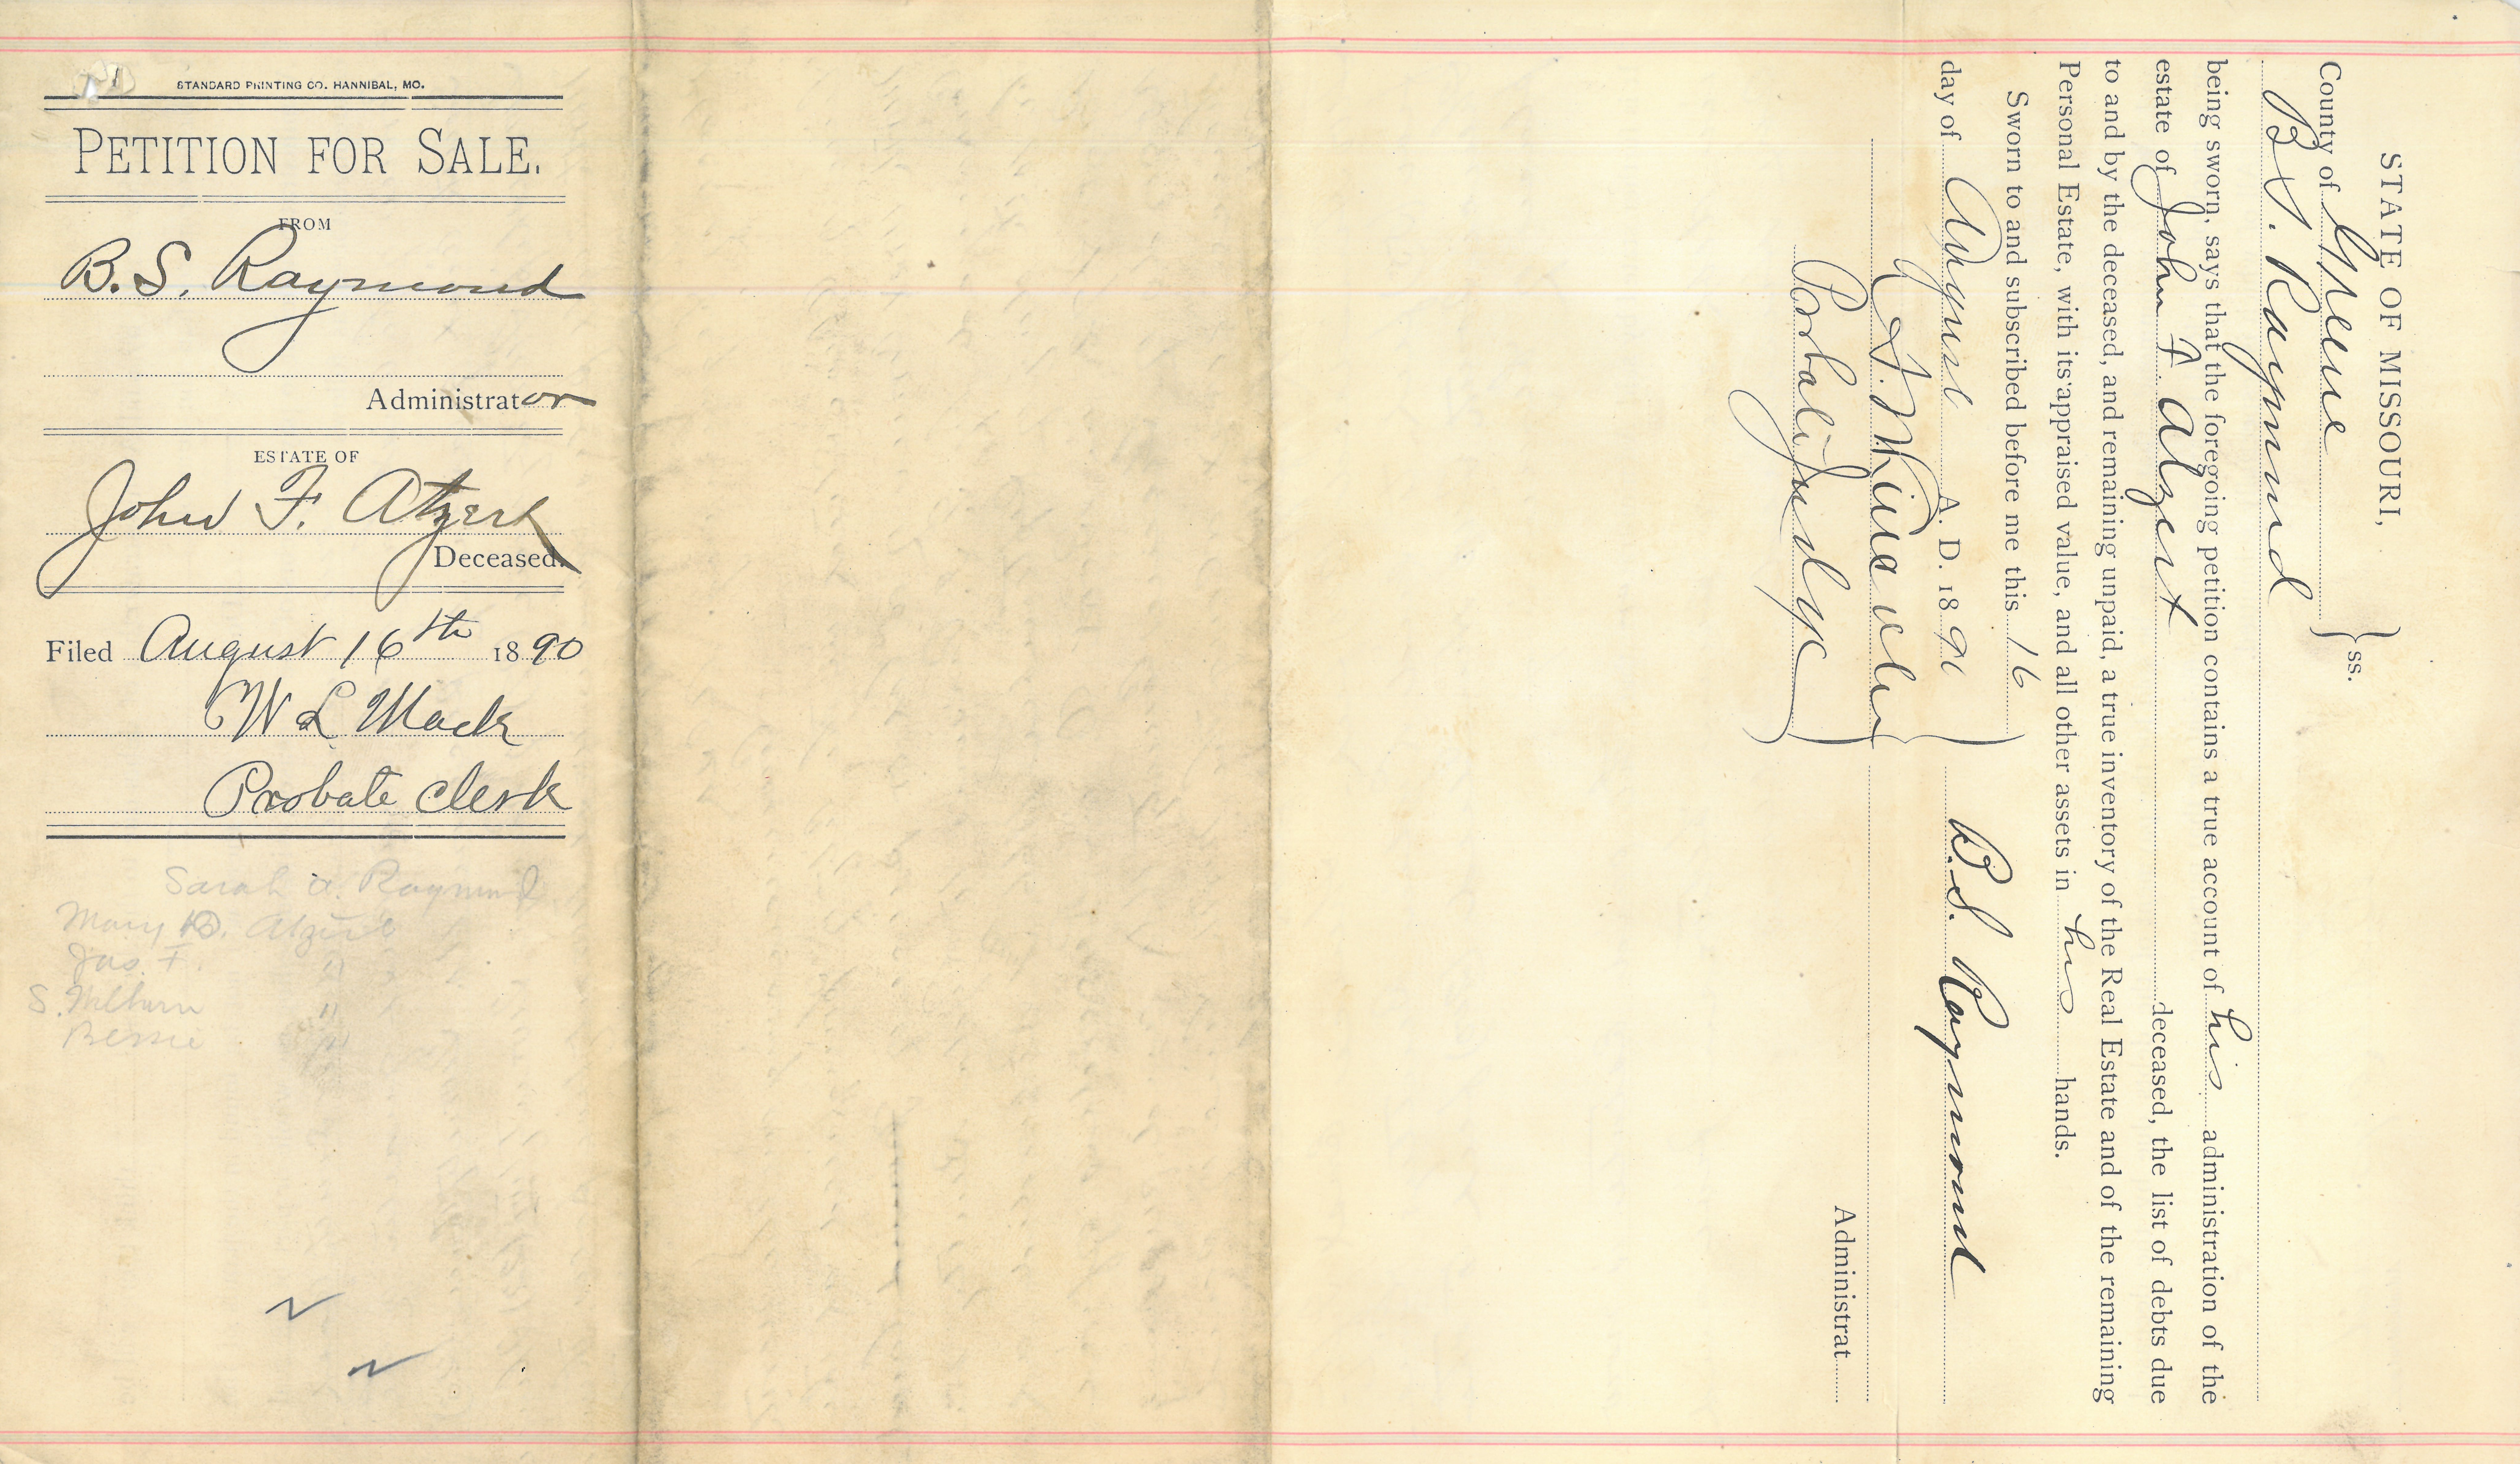 STANDARD PRINTING CO. HANNIBAL, MO.
PETITION FOR SALE.
FROM
B.S. Raymond
Administrator
ESTATE OF
John F. Atzert
Deceased.
Filed August 16th 1890
W L Mack
Probate Clerk
Sarah A. Raymond
Mary B. Atzert
Jas. F. "
S. Milburn "
Bessie "
STATE OF MISSOURI,
County of Greene } ss.
B. S. Raymond
being sworn, says that the foregoing petition contains a true account of his administration of the
estate of John F Atzert deceased, the list of debts due
to and by the deceased, and remaining unpaid, a true inventory of the Real Estate and of the remaining
Personal Estate, with its appraised value, and all other assets in his hands.
Sworn to and subscribed before me this 16
day of August A. D. 1890
B.S. Raymond
Probate Judge
Administrat